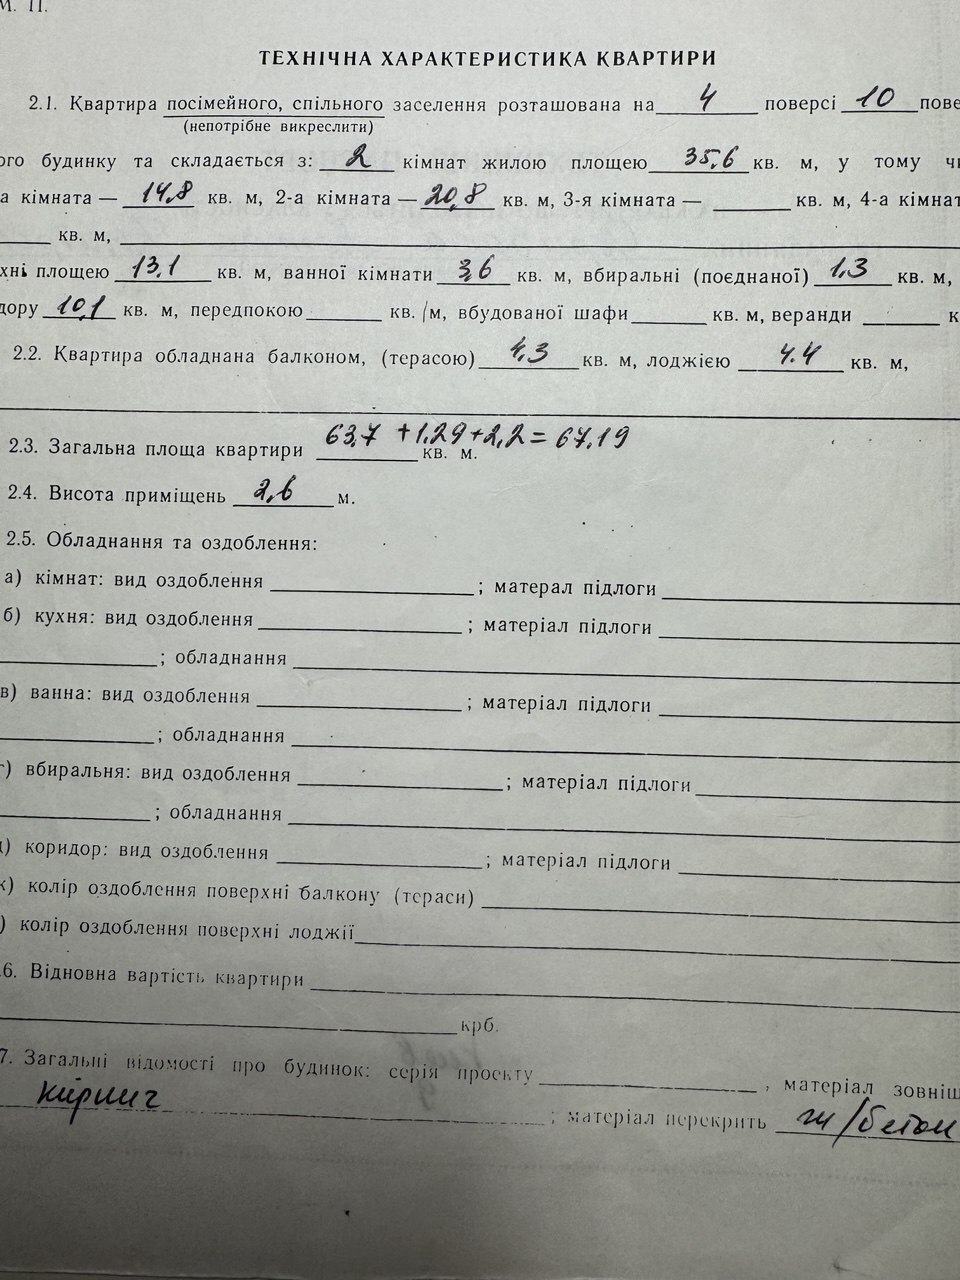 М. П.
ТЕХНІЧНА ХАРАКТЕРИСТИКА КВАРТИРИ
2.1. Квартира посімейного, спільного заселення розташована на 4 поверсі 10 пове
(непотрібне викреслити)
ого будинку та складається з: 2 кімнат жилою площею 35,6 кв. м, у тому чи
а кімната — 14,8 кв. м, 2-а кімната — 20,8 кв. м, 3-я кімната — кв. м, 4-а кімнат
кв. м,
хні площею 13.1 кв. м, ванної кімнати 3,6 кв. м, вбиральні (поєднаної) 1,3 кв. м,
дору 10,1 кв. м, передпокою кв. м, вбудованої шафи кв. м, веранди к
2.2. Квартира обладнана балконом, (терасою) 4,3 кв. м, лоджією 4.4 кв. м,
2.3. Загальна площа квартири 63,7 +1.29+2,2= 67.19 кв. м.
2.4. Висота приміщень 2,6 м.
2.5. Обладнання та оздоблення:
а) кімнат: вид оздоблення ; матерал підлоги
б) кухня: вид оздоблення ; матеріал підлоги
; обладнання
в) ванна: вид оздоблення ; матеріал підлоги
; обладнання
г) вбиральня: вид оздоблення ; матеріал підлоги
; обладнання
) коридор: вид оздоблення ; матеріал підлоги
) колір оздоблення поверхні балкону (тераси)
) колір оздоблення поверхні лоджії
.6. Відновна вартість квартири
крб.
7. Загальні відомості про будинок: серія проекту , матеріал зовніш
кирпич ; матеріал перекрить ж/бетон